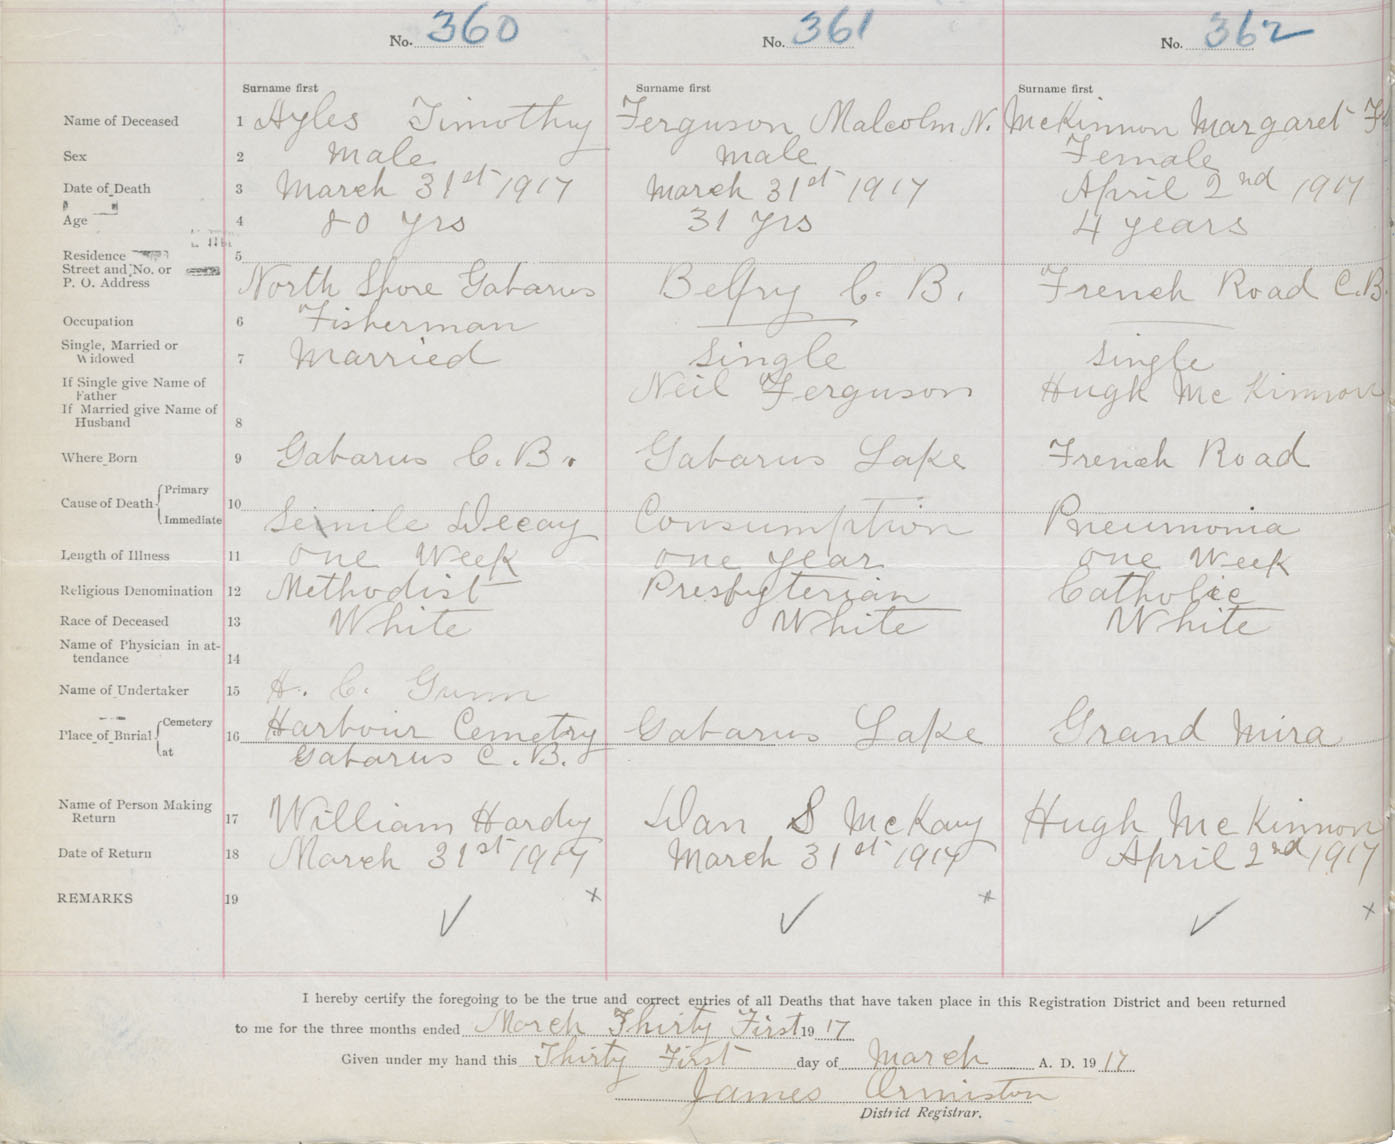 No. 360 No. 361 No. 362
Surname first Surname first Surname first
Name of Deceased 1 Ayles Timothy Ferguson Malcolm N. McKinnon Margaret F
Sex 2 male male Female
Date of Death 3 March 31st 1917 March 31st 1917 April 2nd 1917
Age 4 80 yrs 31 yrs 4 years
Residence 5
Street and No. or
P. O. Address North Shore Gabarus Belfry C. B. French Road C.B.
Occupation 6 Fisherman
Single, Married or
Widowed 7 Married Single Single
If Single give Name of
Father Neil Ferguson Hugh McKinnon
If Married give Name of
Husband 8
Where Born 9 Gabarus C. B. Gabarus Lake French Road
Cause of Death Primary
10
Immediate Senile Decay Consumption Pneumonia
Length of Illness 11 one Week one year one Week
Religious Denomination 12 Methodist Presbyterian Catholic
Race of Deceased 13 White White White
Name of Physician in at-
tendance 14
Name of Undertaker 15 H. C. Gunn
Place of Burial Cemetery 16 Harbour Cemetry Gabarus Lake Grand Mira
at Gabarus C. B.
Name of Person Making
Return 17 William Hardy Dan S McKay Hugh McKinnon
Date of Return 18 March 31st 1917 March 31st 1917 April 2nd 1917
REMARKS 19 ✓ x ✓ x ✓ x
I hereby certify the foregoing to be the true and correct entries of all Deaths that have taken place in this Registration District and been returned
to me for the three months ended March Thirty First 1917
Given under my hand this Thirty First day of March A. D. 1917
James Ormiston
District Registrar.